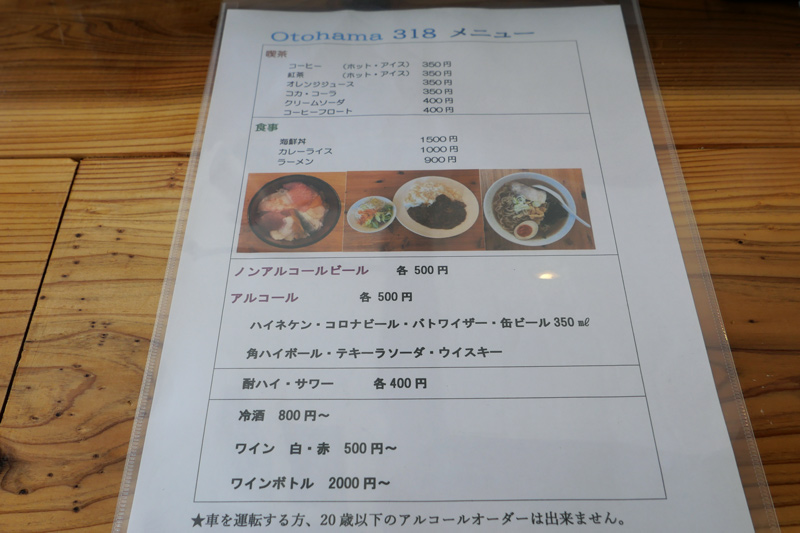 Otohama 318 メニュー
喫茶
コーヒー （ホット・アイス） 350円
紅茶 （ホット・アイス） 350円
オレンジジュース 350円
コカ・コーラ 350円
クリームソーダ 400円
コーヒーフロート 400円
食事
海鮮丼 1500円
カレーライス 1000円
ラーメン 900円
ノンアルコールビール 各 500円
アルコール 各 500円
ハイネケン・コロナビール・バトワイザー・缶ビール350㎖
角ハイボール・テキーラソーダ・ウイスキー
酎ハイ・サワー 各400円
冷酒 800円～
ワイン 白・赤 500円～
ワインボトル 2000円～
★車を運転する方、20歳以下のアルコールオーダーは出来ません。